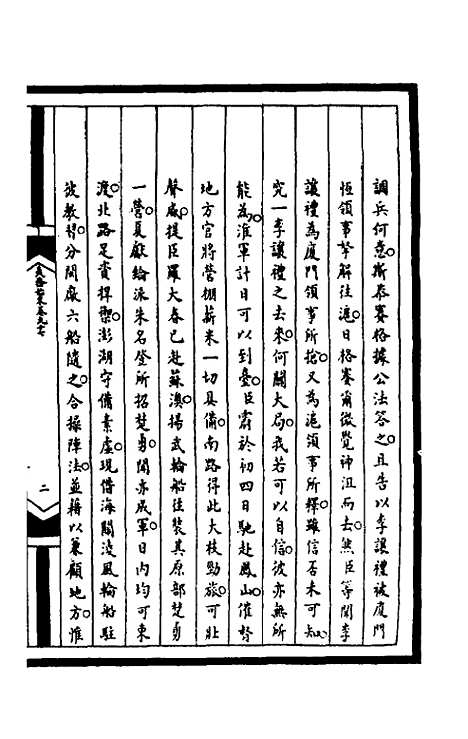 調兵何意斯恭塞格據公法答之且告以李讓禮被廈門
恆領事拏解往滬日格賽爾微覺神沮而去然臣等聞李
讓禮為廈門領事所搶又為滬領事所釋雖信否未可知
究一李讓禮之去來何關大局我若可以自信彼亦無所
能為淮軍計日可以到臺臣霨於初四日馳赴鳳山催督
地方官將營棚薪米一切具備南路得此大枝勁旅可壯
聲威提臣羅大春已赴蘇澳揚武輪船往裝其原部楚勇
一營夏獻綸派朱名登所招楚勇聞亦成軍日內均可東
渡北路足資捍禦澎湖守備素虛現借海關淩風輪船駐
彼教習分閩廠六船隨之合操陣法並藉以兼顧地方惟
二